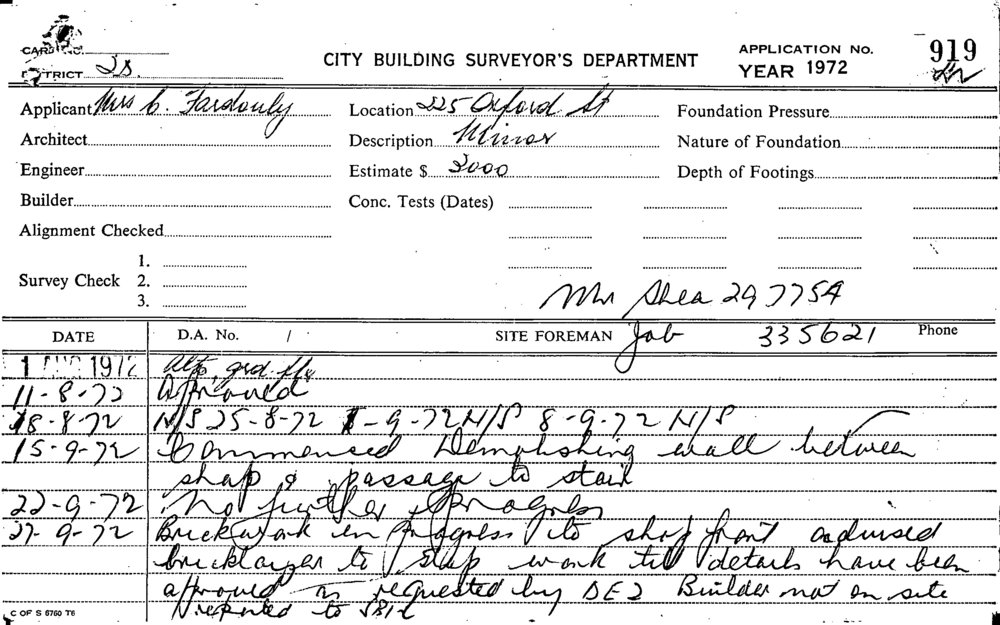 CARD NO.
DISTRICT Is.
CITY BUILDING SURVEYOR'S DEPARTMENT
APPLICATION No. 919
YEAR 1972
Applicant Mrs C. Fardouly
Location 225 Oxford St
Foundation Pressure
Architect
Description Minor
Nature of Foundation
Engineer
Estimate $ 3000
Depth of Footings
Builder
Conc. Tests (Dates)
Alignment Checked
Survey Check 1.
2.
3.
Mr Shea 29 7754
DATE D.A. No. / SITE FOREMAN Job 335621 Phone
1 AUG 1972 Alts, grd. flr
11-8-72 Approved
18-8-72 N/S 25-8-72 1-9-72 N/S 8-9-72 N/S
15-9-72 Commenced Demolishing wall between
shop & passage to stair
22-9-72 No further progress
27-9-72 Brickwork in Progress to shop front advised
bricklayer to stop work till details have been
approved as requested by DE2 Builder not on site
reported to
C OF S 6760 T6